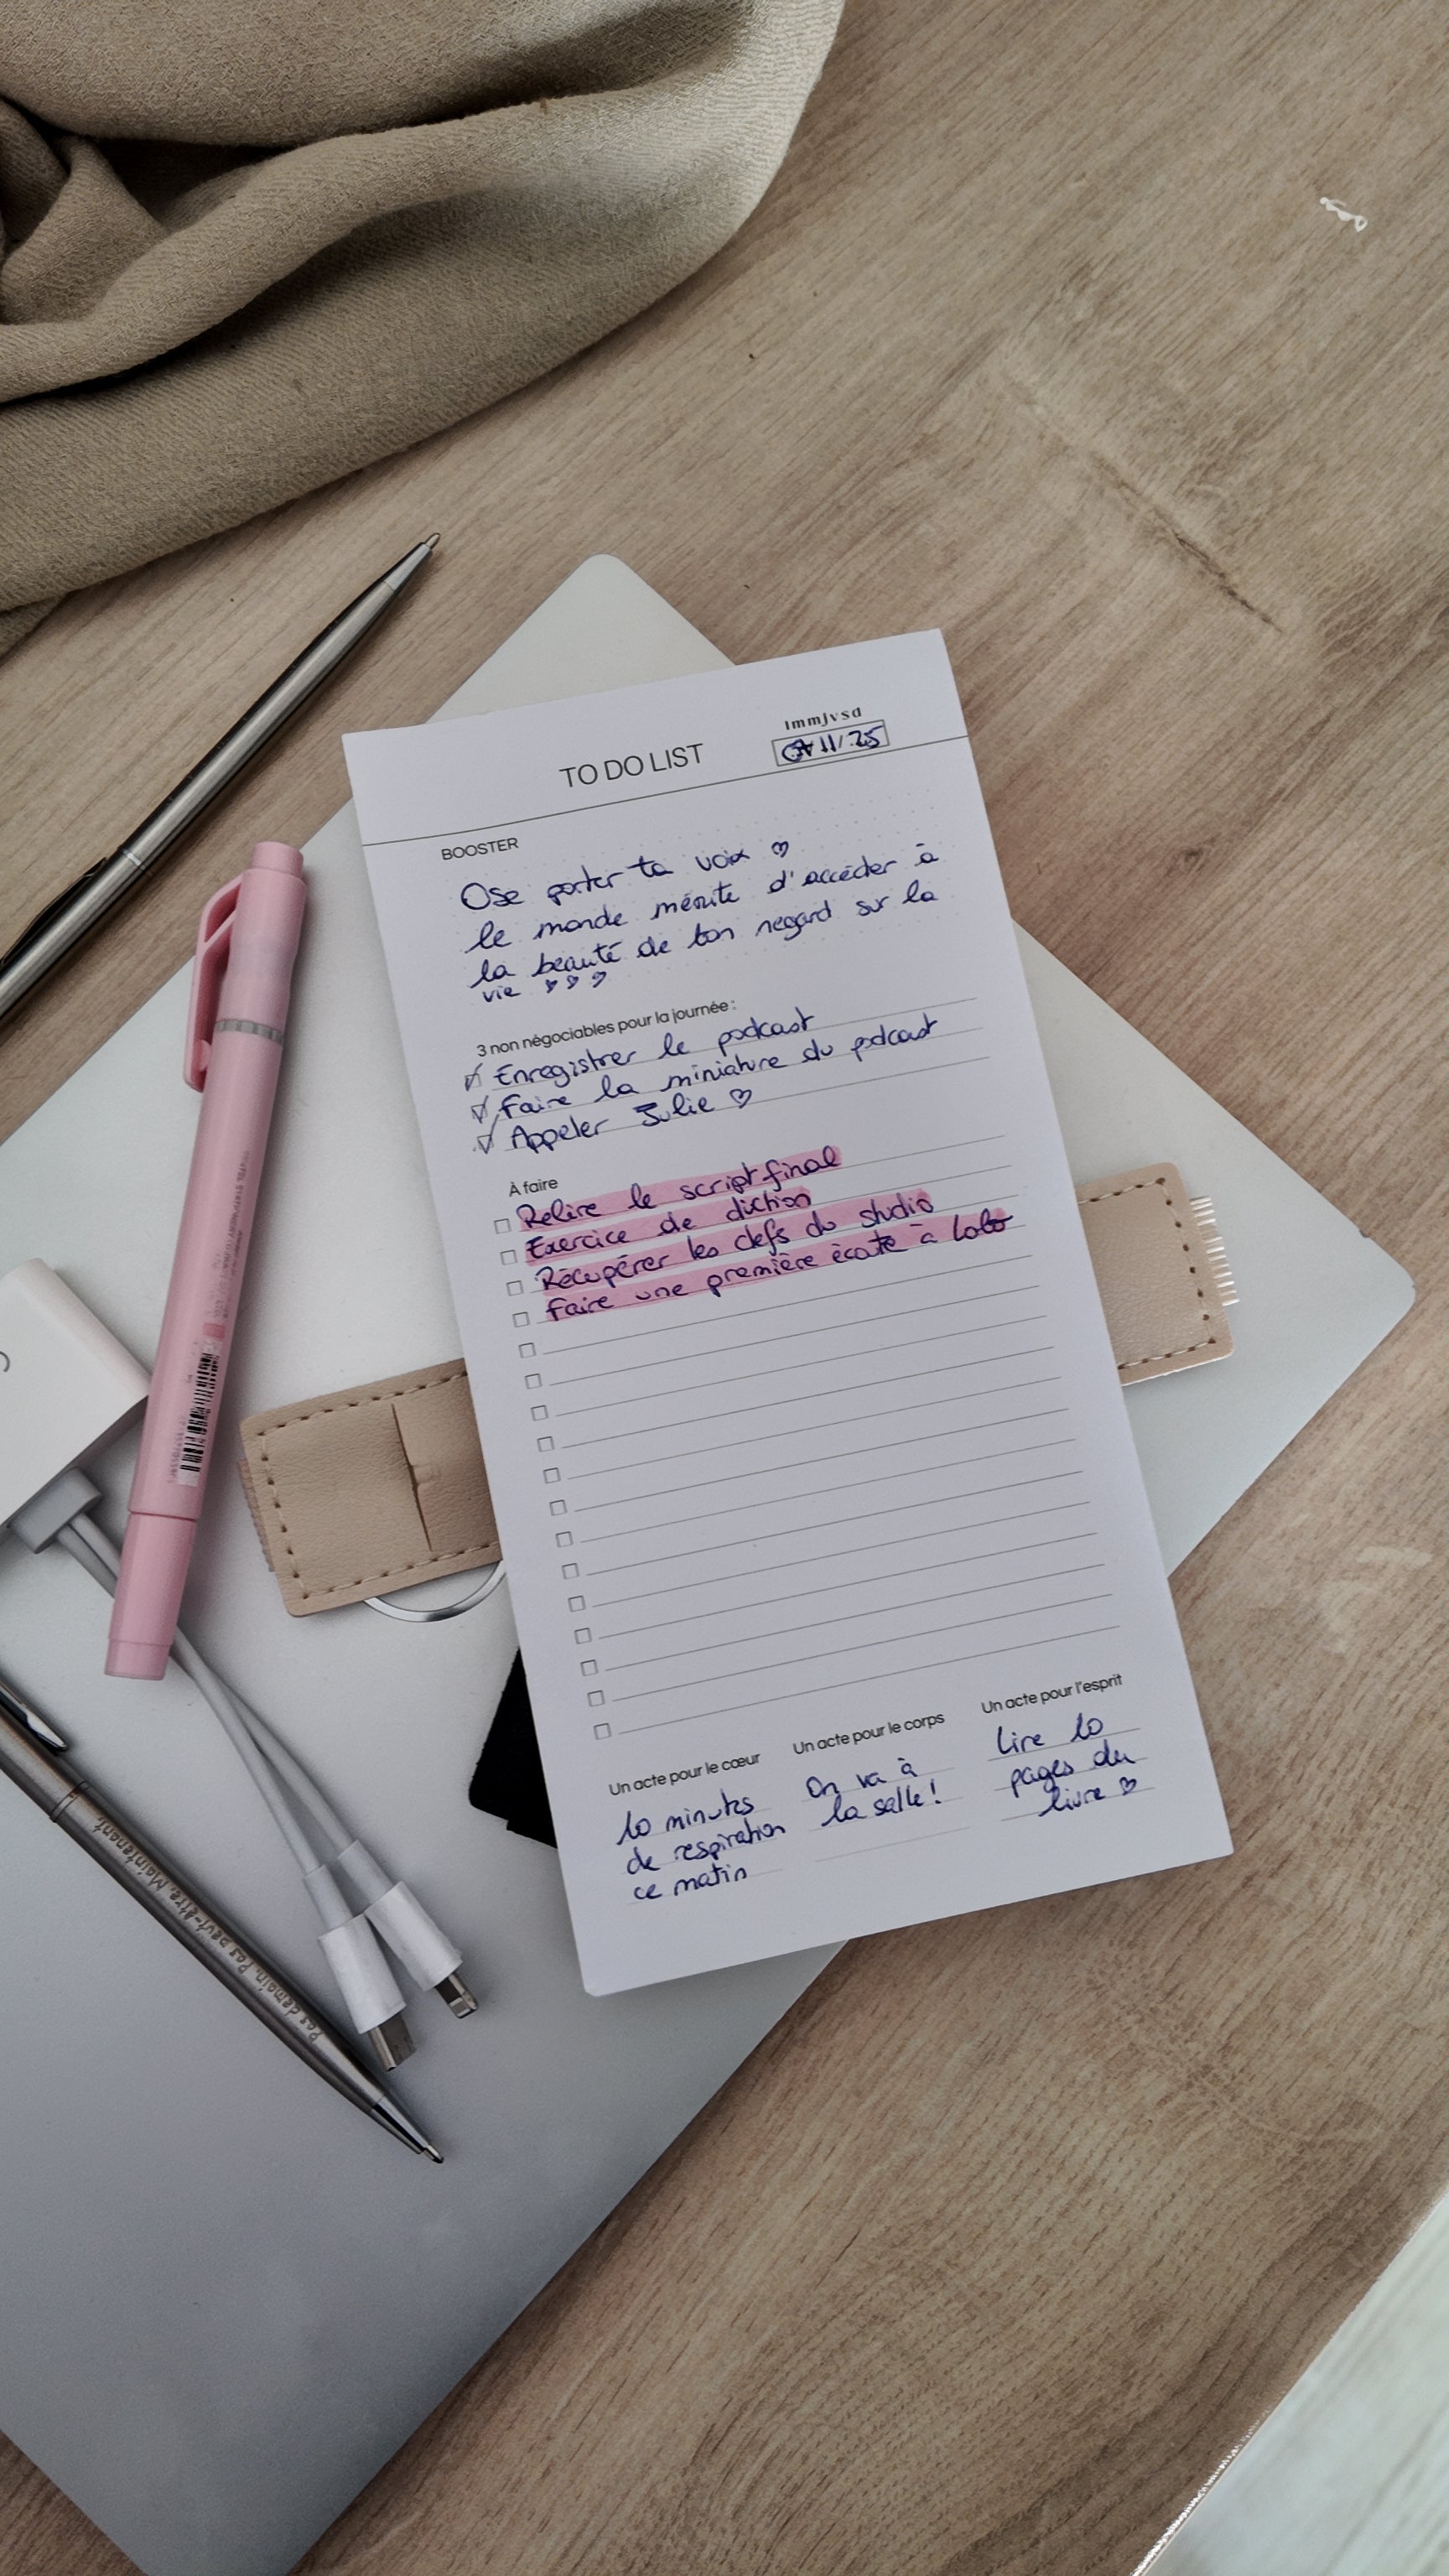 TO DO LIST
lmmjvsd
11/25
BOOSTER
Ose porter ta voix ♡
le monde mérite d'accéder à
la beauté de ton regard sur la
vie ♡♡♡
3 non négociables pour la journée :
Enregistrer le podcast
Faire la miniature du podcast
Appeler Julie ♡
À faire
Relire le script final
Exercice de diction
Récupérer les clefs du studio
Faire une première écoute à Lolo
Un acte pour le cœur
10 minutes
de respiration
ce matin
Un acte pour le corps
On va à
la salle !
Un acte pour l'esprit
Lire 10
pages du
livre ♡
Pas demain. Pas peut-être. Maintenant.